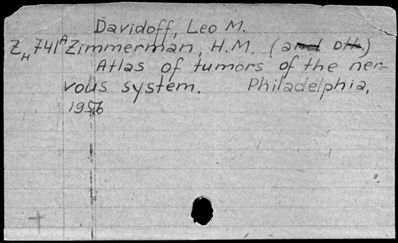 Davidoff, Leo M.
ZH741A Zimmerman, H.M. (and oth.)
Atlas of tumors of the ner-
vous system. Philadelphia,
1956